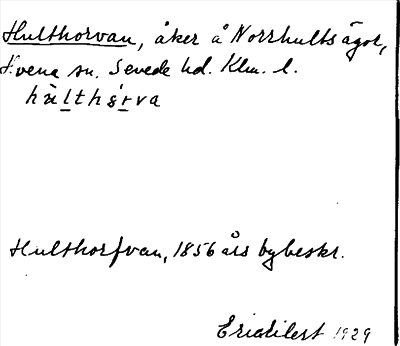 Hulthorvan, åker å Norrhults ägor,
Hvena sn. Sevede hd. Klm. l.
hùlthórva
Hulthorfvan, 1856 års bybeskr.
1929